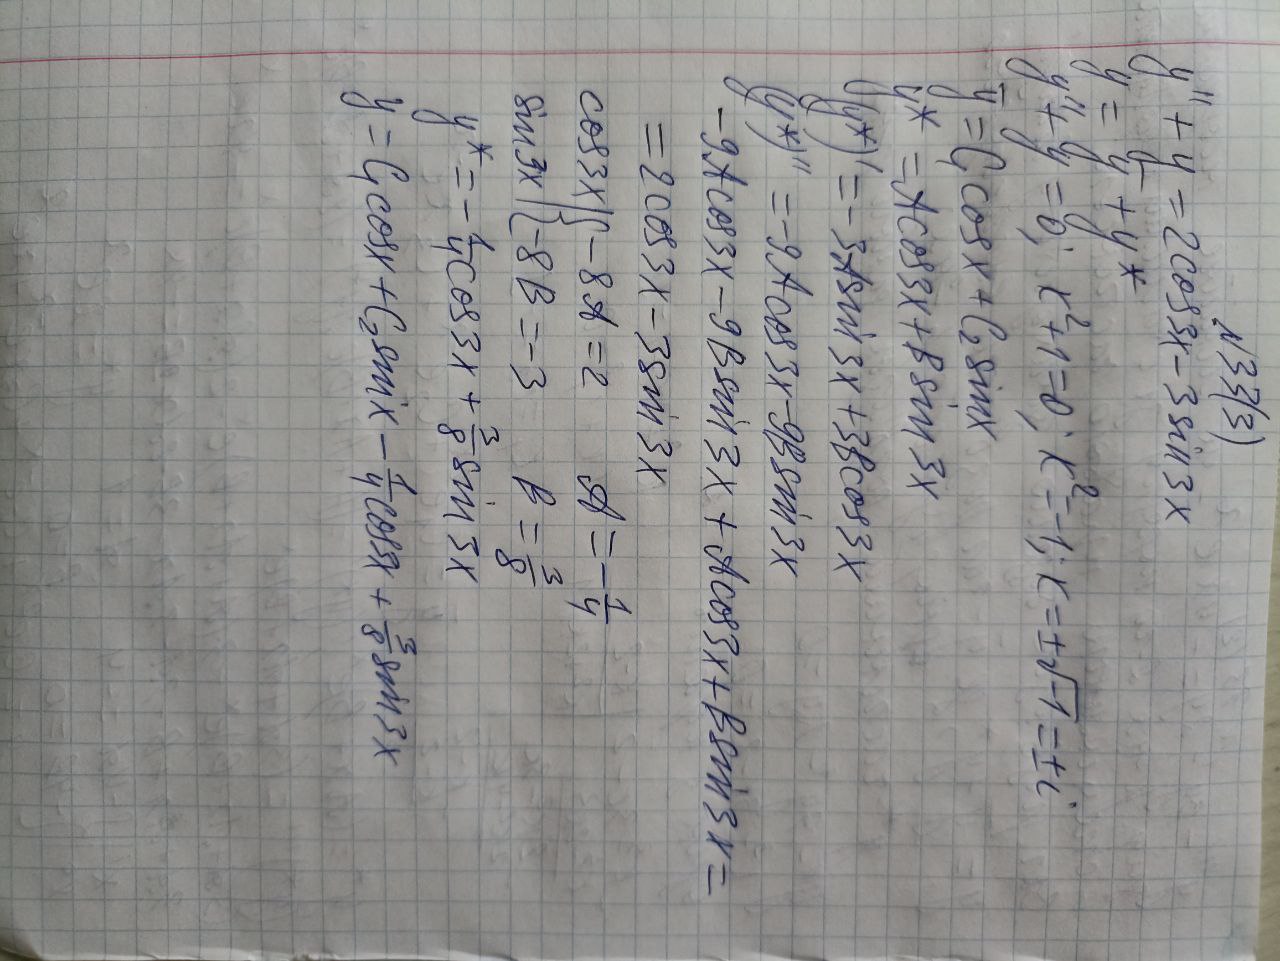 №33(3)
y'' + y = 2cos3x - 3sin3x
y = ȳ + y*
y'' + y = 0; k²+1=0; k²=-1; k=±√-1=±i
ȳ = C₁cosx + C₂sinx
y* = Acos3x + Bsin3x
(y*)' = -3Asin3x + 3Bcos3x
(y*)'' = -9Acos3x - 9Bsin3x
-9Acos3x - 9Bsin3x + Acos3x + Bsin3x =
= 2cos3x - 3sin3x
cos3x | { -8A = 2    A = -1/4
sin3x | { -8B = -3    B = 3/8
y* = -1/4cos3x + 3/8sin3x
y = C₁cosx + C₂sinx - 1/4cos3x + 3/8sin3x